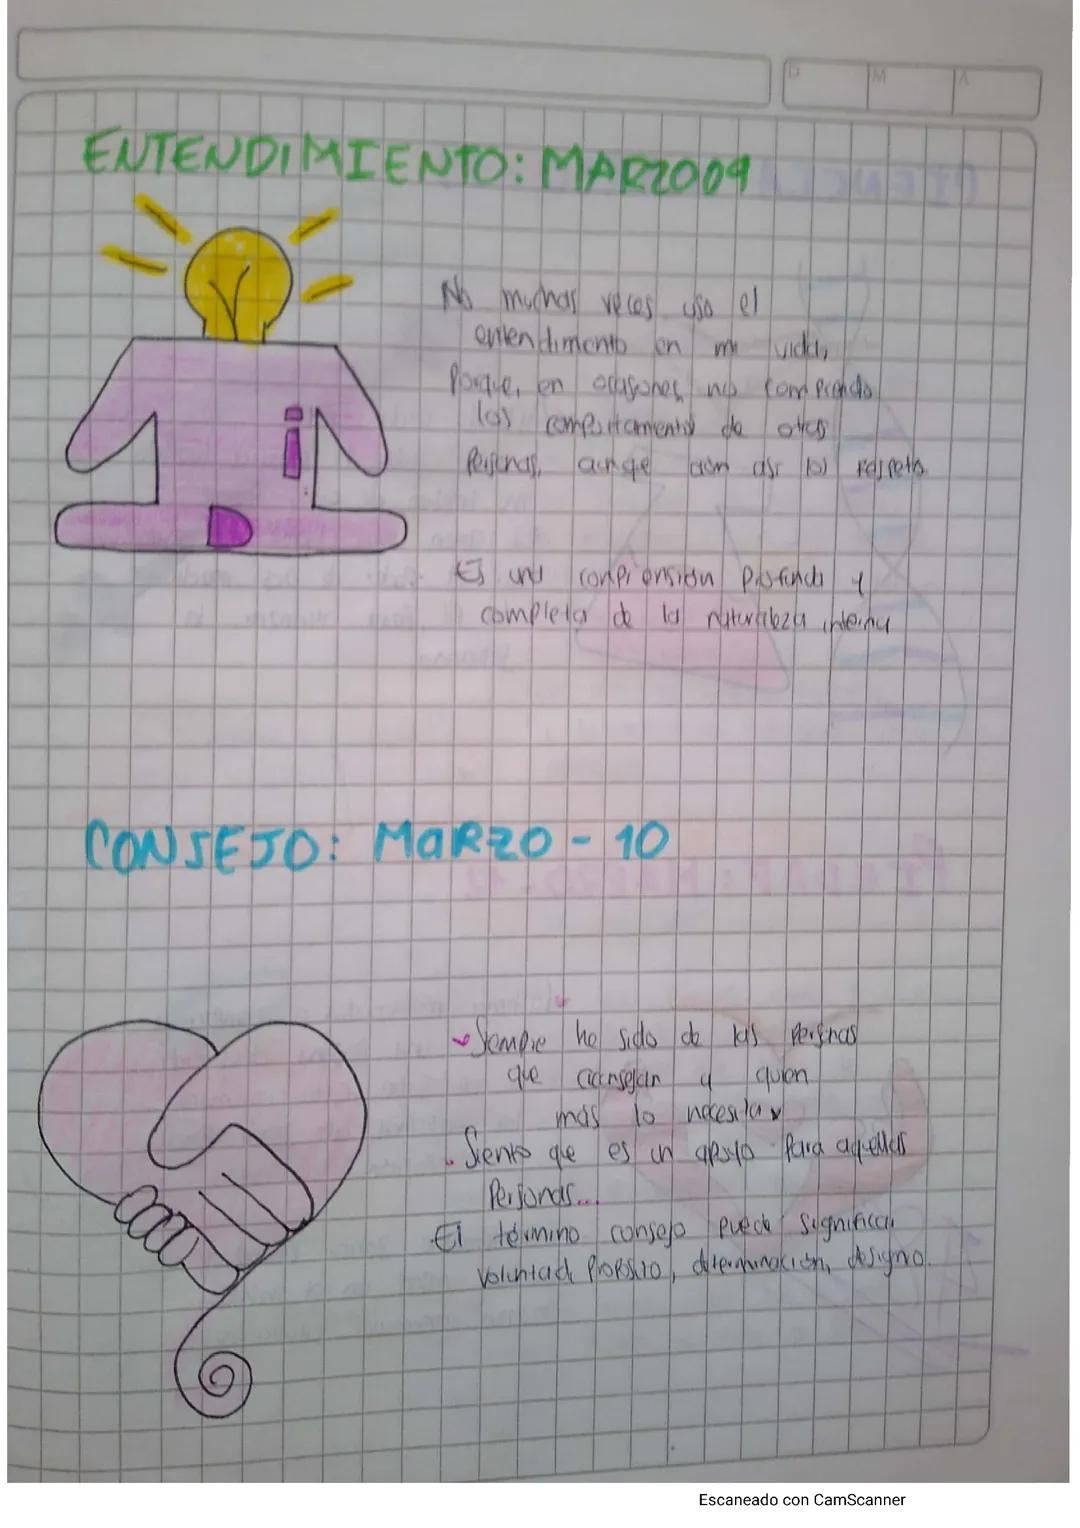 D M A
ENTENDIMIENTO: MARZO 09
No muchas veces uso el
entendimento en mi vida,
Porque, en ocasiones, no comprendo
los comportamiento de otras
Personas, aunqe aún así los respeto.
Es una comprensión profunda y
completa de la naturaleza interna
CONSEJO: MARZO - 10
Siempre he sido de las personas
que aconsejan y quien
más lo necesita
. Siento que es un apoyo para aquellas
Personas...
El término consejo puede significar
voluntad, Propósito, determinación, designio.
Escaneado con CamScanner